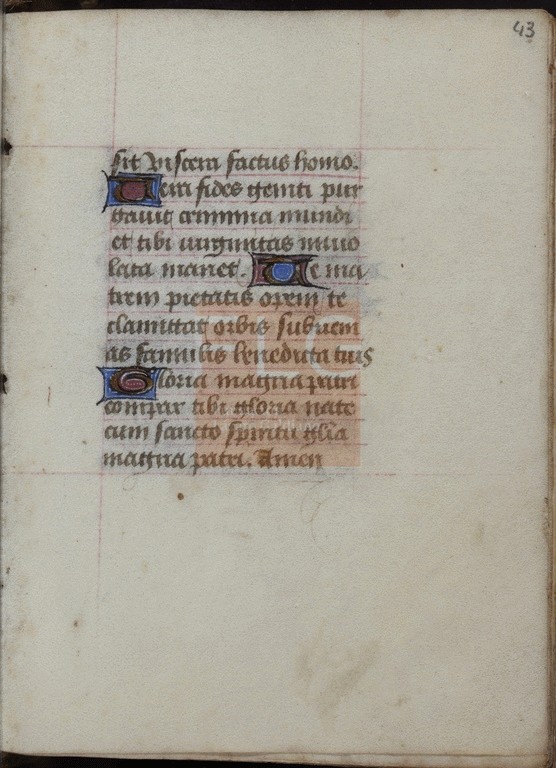 43
sit viscera factus homo.
Vera fides geniti pur
gavit crimina mundi
et tibi virginitas invio
lata manet. Te ma
trem pietatis opem te
clamitat orbis subueni
as famulis benedicta tuis
Gloria magna patri
compar tibi gloria nate
cum sancto spiritu glia
magna patri. Amen